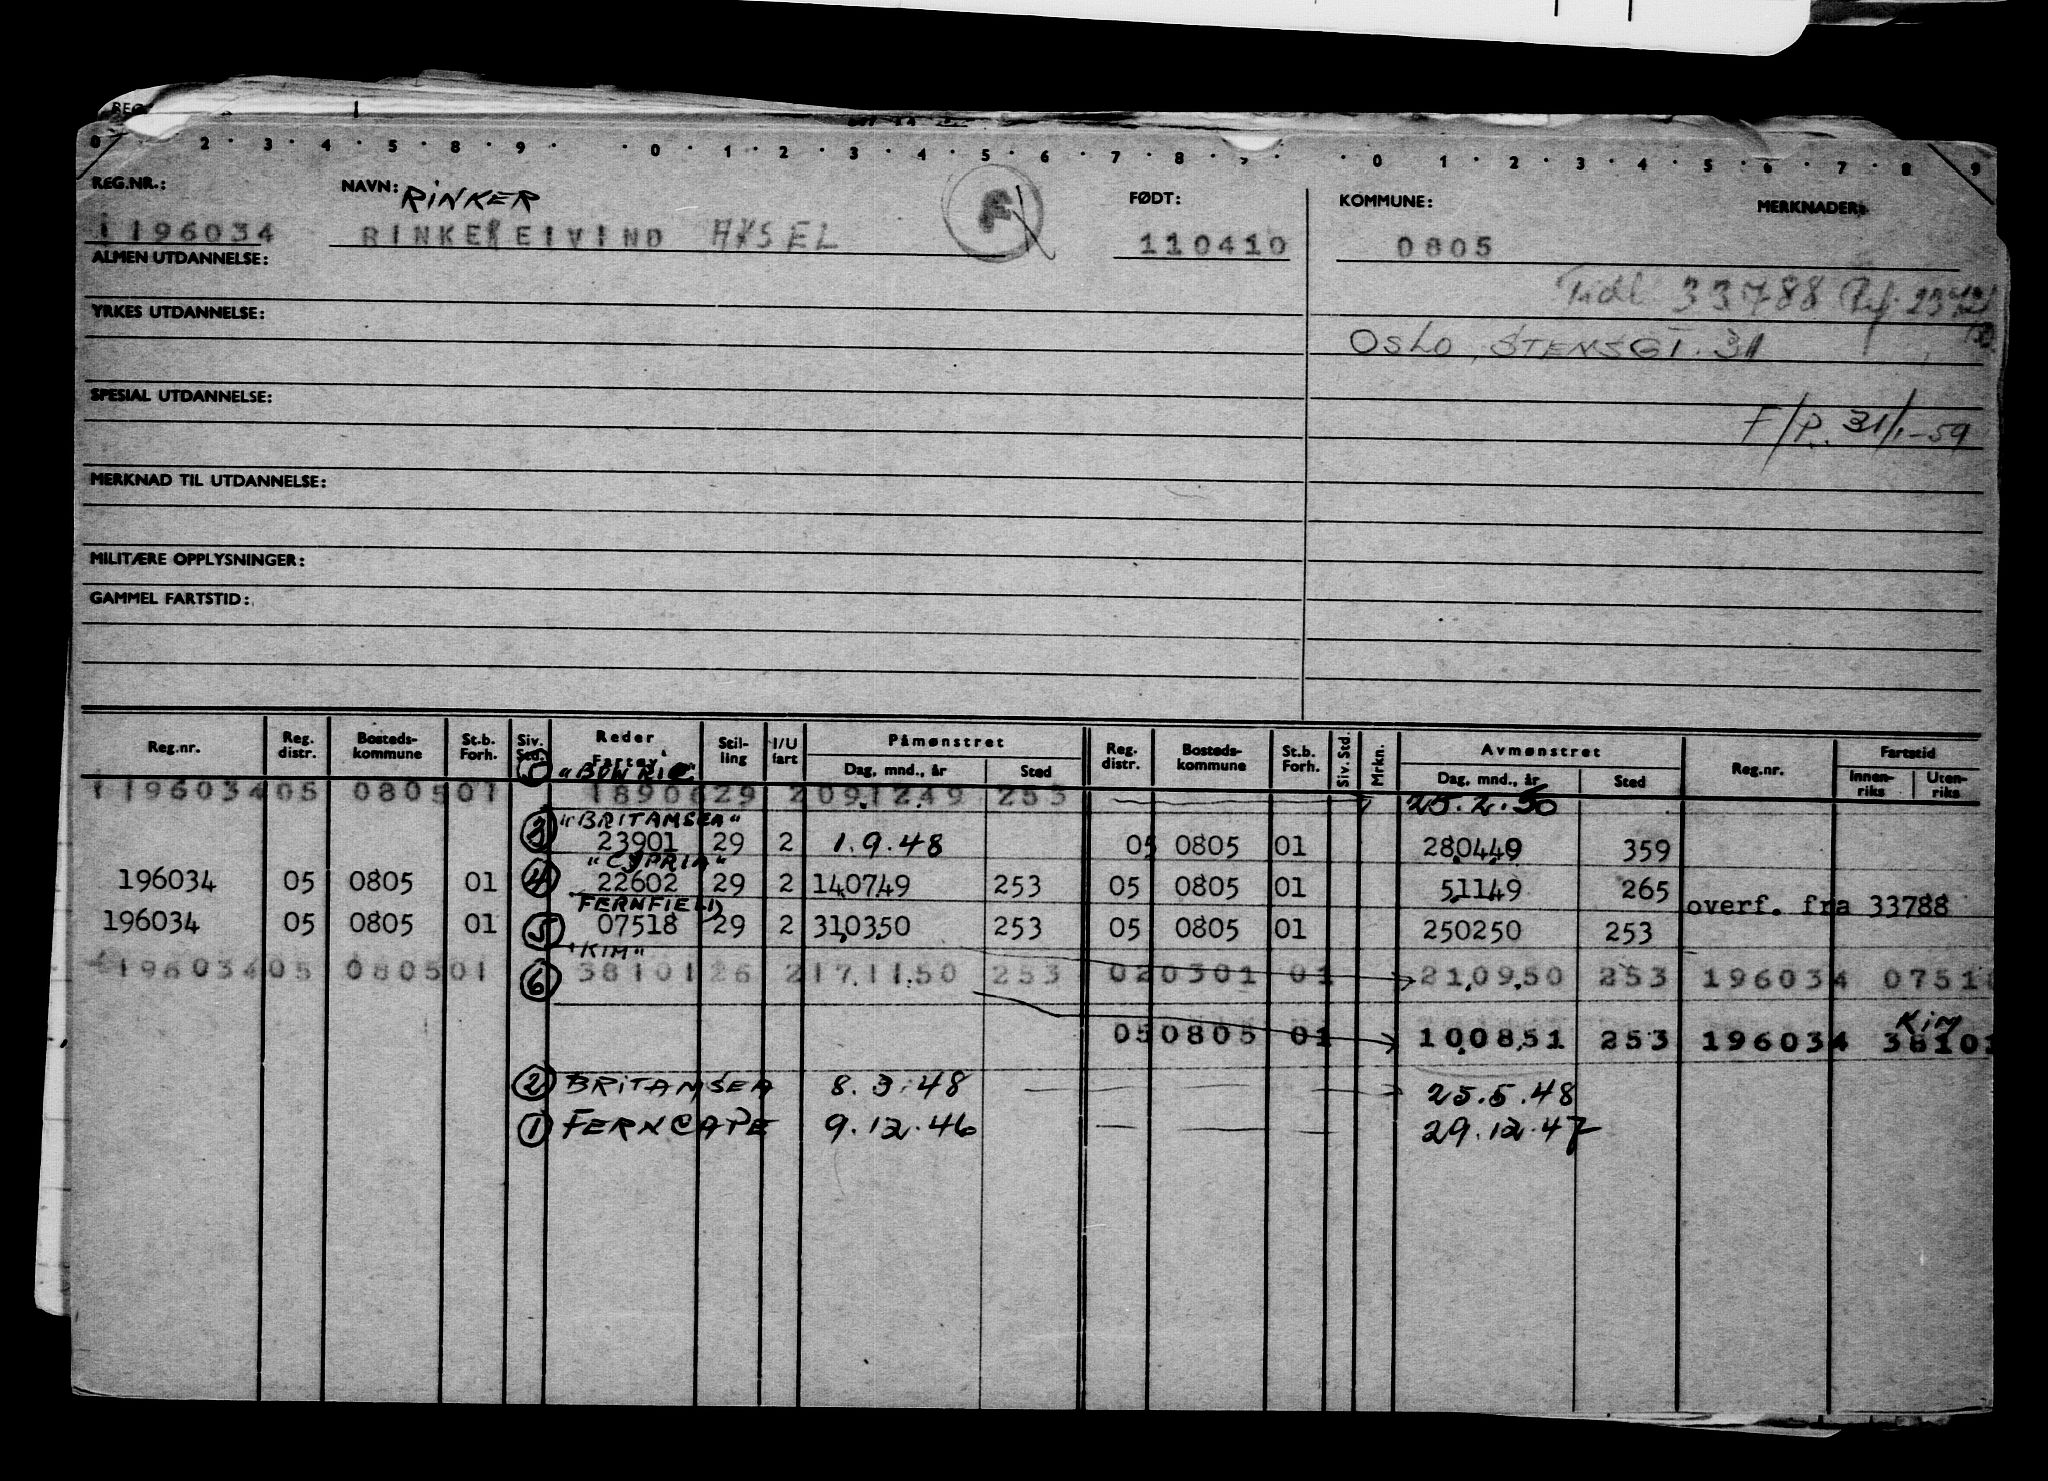 REG.
0 . 2 . 3 . 4 . 5 . 8 . 9 . . 0 . 1 . 2 . 3 . 4 . 5 . 6 . 7 . 8 . . . 0 . 1 . 2 . 3 . 4 . 5 . 6 . 7 . 8 . 9
REG.NR.: NAVN: RINKER FØDT: KOMMUNE: MERKNADER:
1196034 RINKE EIVIND AKSEL F 110410 0805
ALMEN UTDANNELSE:
Tidl 33788
YRKES UTDANNELSE:
OSLO, STENSGT. 31
SPESIAL UTDANNELSE:
F/P. 31/1-59
MERKNAD TIL UTDANNELSE:
MILITÆRE OPPLYSNINGER:
GAMMEL FARTSTID:
Reg.nr. Reg. distr. Bosteds-kommune St.b. Forh. Siv. Std. Reder Fartøy Stil-ling I/U fart Påmønstret Dag, mnd., år Sted Reg. distr. Bosteds-kommune St.b. Forh. Siv. Std. Mrkn. Avmønstret Dag, mnd., år Sted Reg.nr. Fartstid Innen-riks Uten-riks
1196034 05 0805 01 18906 29 2 091249 253 25.2.50
3 "BRITAMSEA"
23901 29 2 1.9.48 05 0805 01 280449 359
"CYPRIA"
196034 05 0805 01 4 22602 29 2 140749 253 05 0805 01 51149 265
FERNFIELD overf. fra 33788
196034 05 0805 01 5 07518 29 2 310350 253 05 0805 01 250250 253
"KIM"
196034 05 0805 01 6 38101 26 2 171150 253 02 0301 01 210950 253 196034 0751
Kim
05 0805 01 100851 253 196034 38101
2 BRITAMSEA 8.3.48 25.5.48
1 FERNCAPE 9.12.46 29.12.47